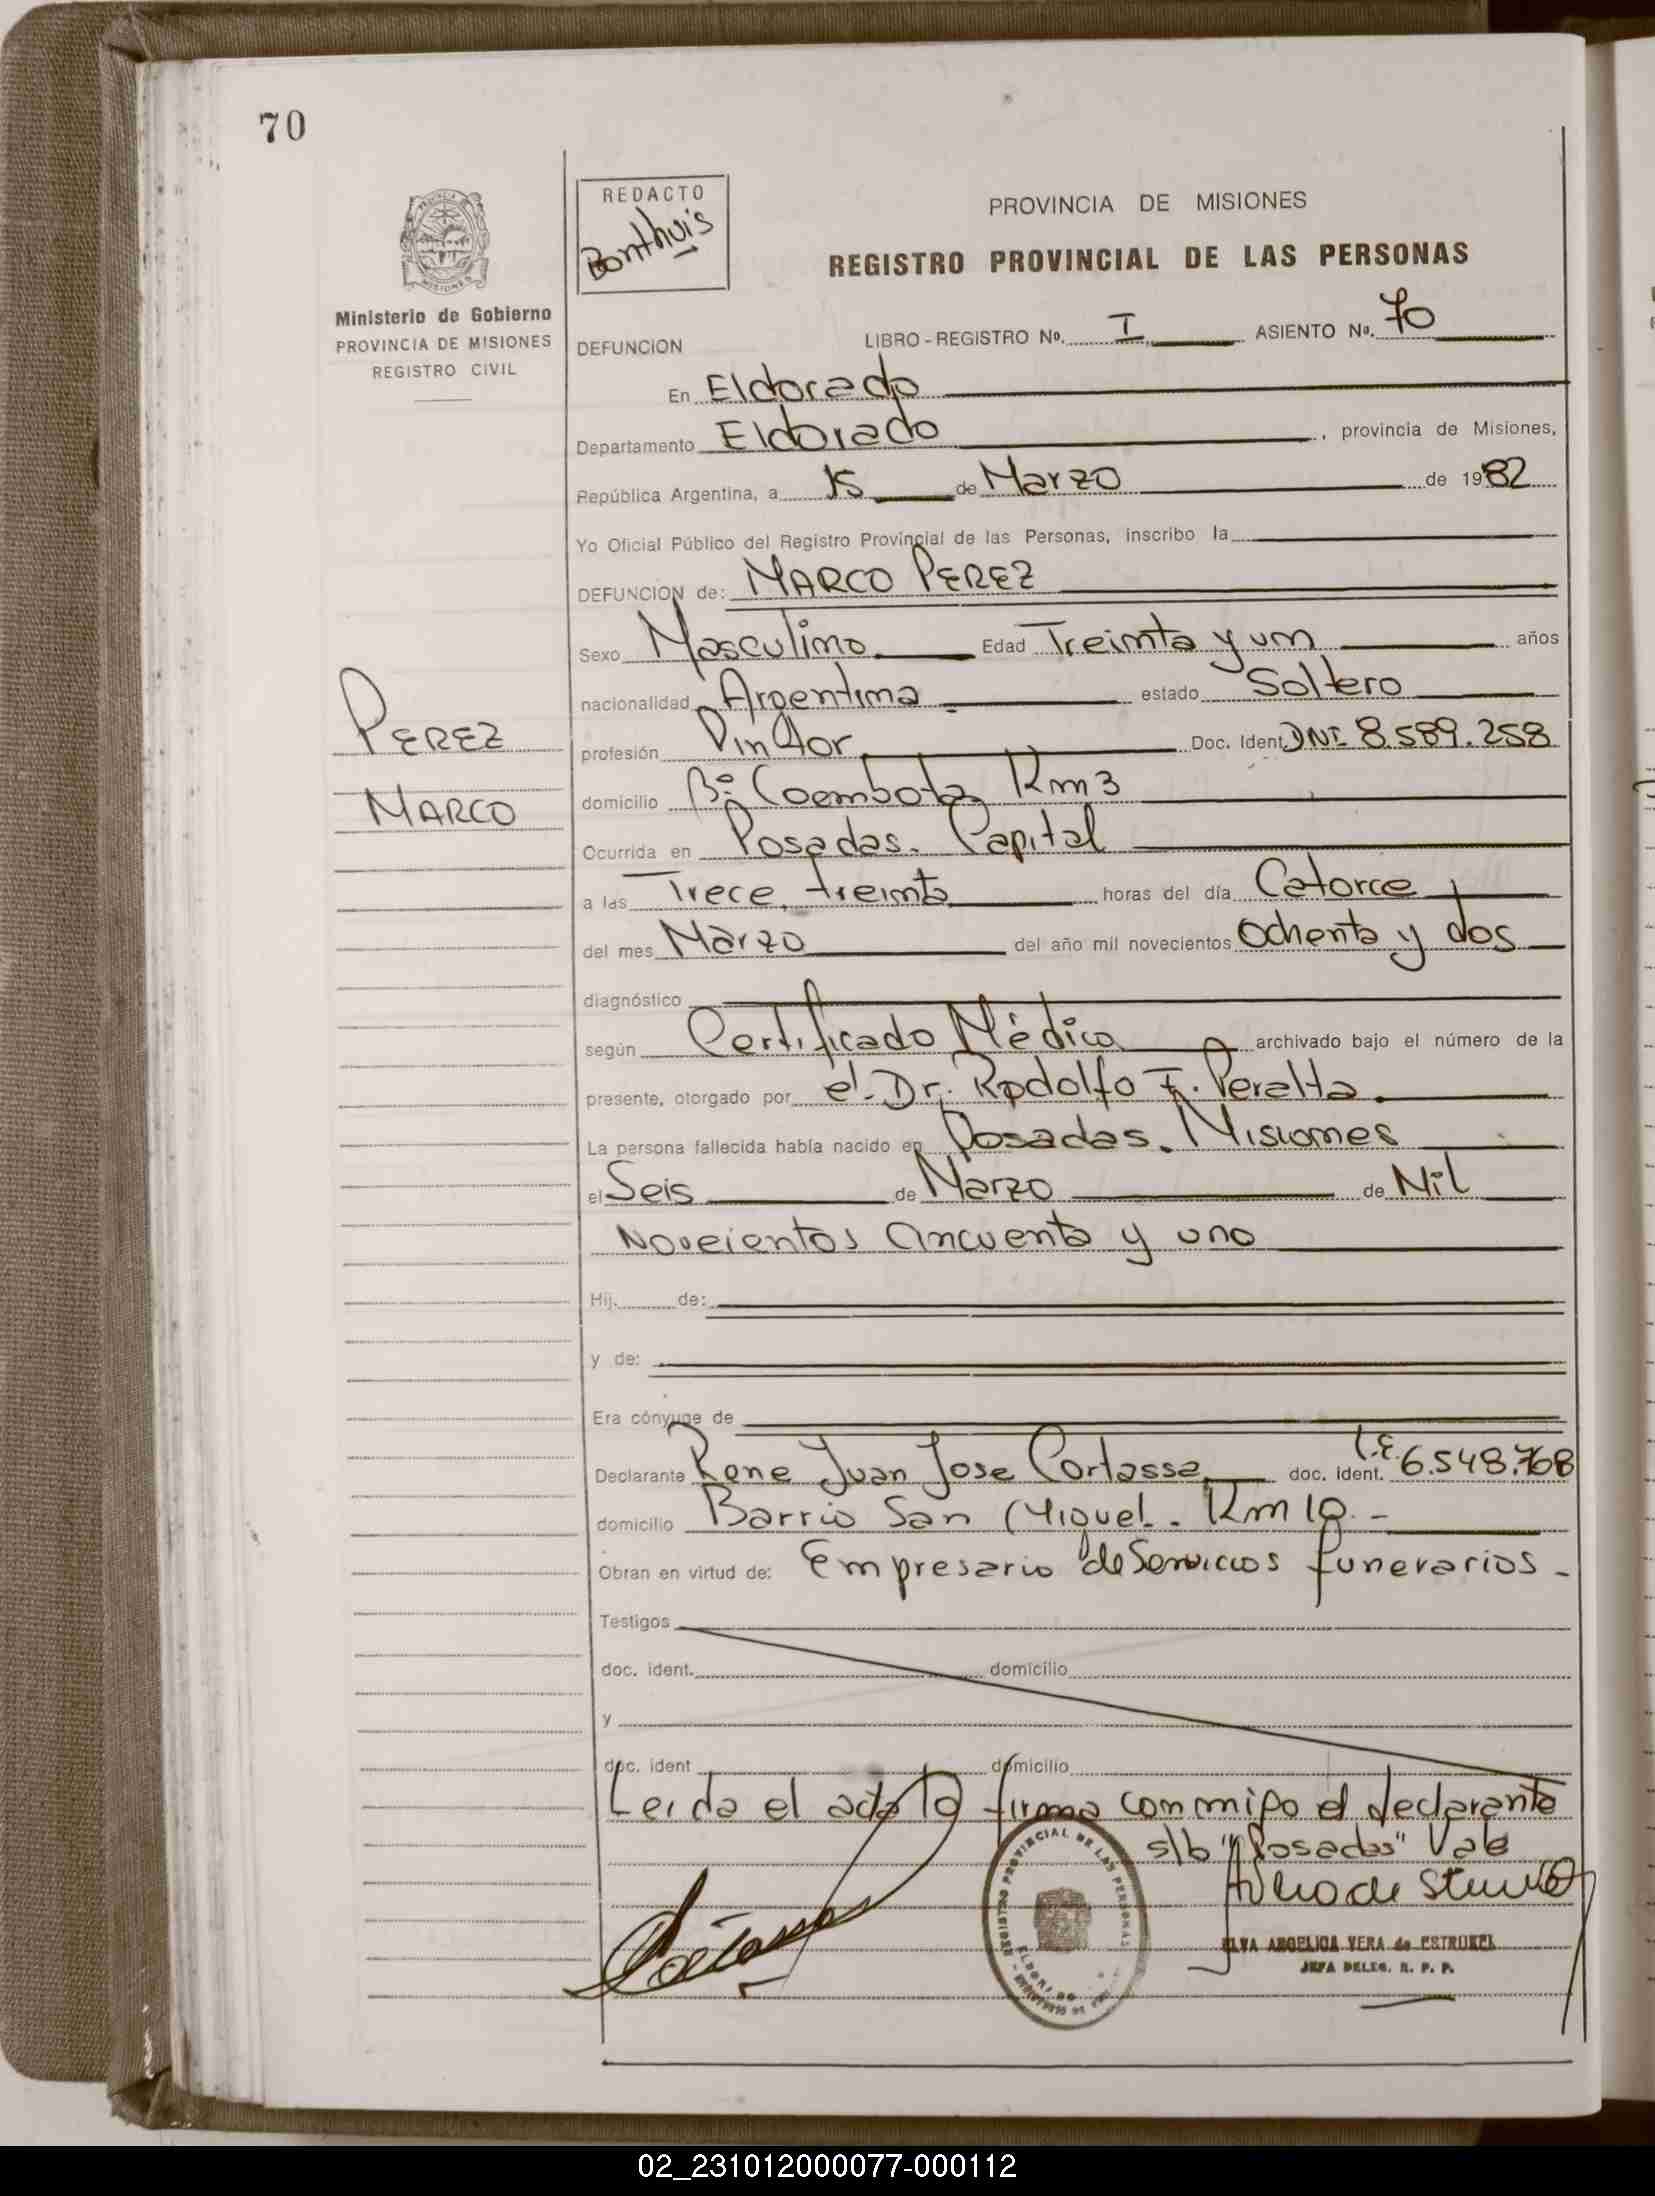 70
REDACTO
Bonthuis
PROVINCIA DE MISIONES
REGISTRO PROVINCIAL DE LAS PERSONAS
Ministerio de Gobierno
PROVINCIA DE MISIONES
REGISTRO CIVIL
DEFUNCION LIBRO - REGISTRO Nº. I ASIENTO Nº. 70
En Eldorado
Departamento Eldorado, provincia de Misiones,
República Argentina, a 15 de Marzo de 1982
Yo Oficial Público del Registro Provincial de las Personas, inscribo la
DEFUNCION de: MARCO PEREZ
Sexo Masculino Edad Treinta y un años
nacionalidad Argentina estado Soltero
PEREZ
MARCO
profesión Pintor Doc. Ident DNI- 8.589.258
domicilio Bº Coembota Km 3
Ocurrida en Posadas. Capital
a las Trece, treinta horas del día Catorce
del mes Marzo del año mil novecientos Ochenta y dos
diagnóstico
según Certificado Médico archivado bajo el número de la
presente, otorgado por el Dr. Rodolfo F. Peralta
La persona fallecida había nacido en Posadas. Misiones
el Seis de Marzo de Mil
Noveientos cincuenta y uno
Hij. de:
y de:
Era cónyuge de
Declarante Rene Juan Jose Cortassa doc. ident. L.E. 6.548.768
domicilio Barrio San Miguel. Km 10. -
Obran en virtud de: Empresario de Servicios funerarios -
Testigos
doc. ident. domicilio
y
doc. ident domicilio
Leida el acta la firma conmigo el declarante
s/b "Posadas" Vale
REGISTRO PROVINCIAL DE LAS PERSONAS
ELVA ANGELICA VERA de ESTRUKEL
JEFA DELEG. R. P. P.
02_231012000077-000112